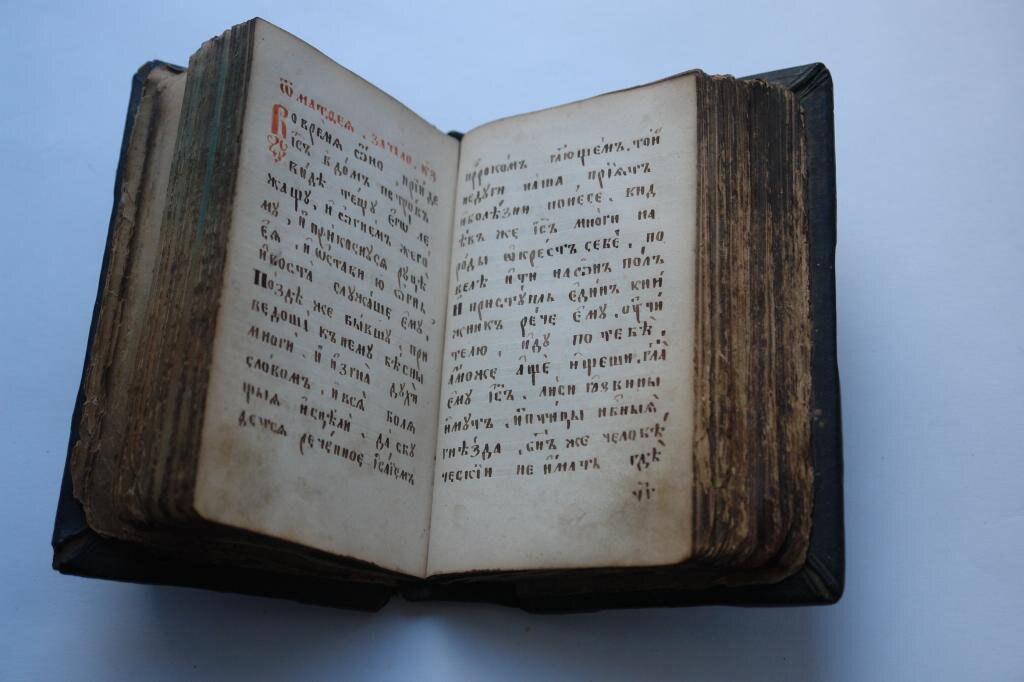 Ѿ матѳеа . зачало . к҃з
Во время ѻ҆но прїиде
і҆с҃ъ в домъ петровъ
видѣ тещу є҆гѡ ле
жащу, и҆ ѻ҆гнемъ жего
му, и҆ прикоснуся руцѣ
є҆ѧ, и҆ ѡ҆стави ю ѻ҆гнь,
и҆ воста служаше є҆му,
Позде же бывшу, при
ведоша къ нему бѣсны
многи. и҆ и҆згна духи
словомъ, и҆ вся боля
щыя и҆сцѣли. да сбу
детъся реченное і҆саїемъ
пр҃рокомъ гл҃ющіемъ. той
недуги наша, прїятъ
и҆ болѣзни понесе. вид
ѣвъ же і҆с҃ъ многи на
роды ѡ҆крестъ себе, по
велѣ и҆ти на ѻ҆нъ полъ
И҆ приступль є҆динъ кни
жникъ рече є҆му. ѹ҆чи
телю, и҆ду по тебѣ,
а҆може а҆ще и҆деши. гл҃а
є҆му і҆с҃ъ. лиси ꙗ҆звины
и҆мутъ, и҆ птицы нб҃ныя,
гнѣзда, сн҃ъ же человѣ
ческїи не и҆матъ гдѣ